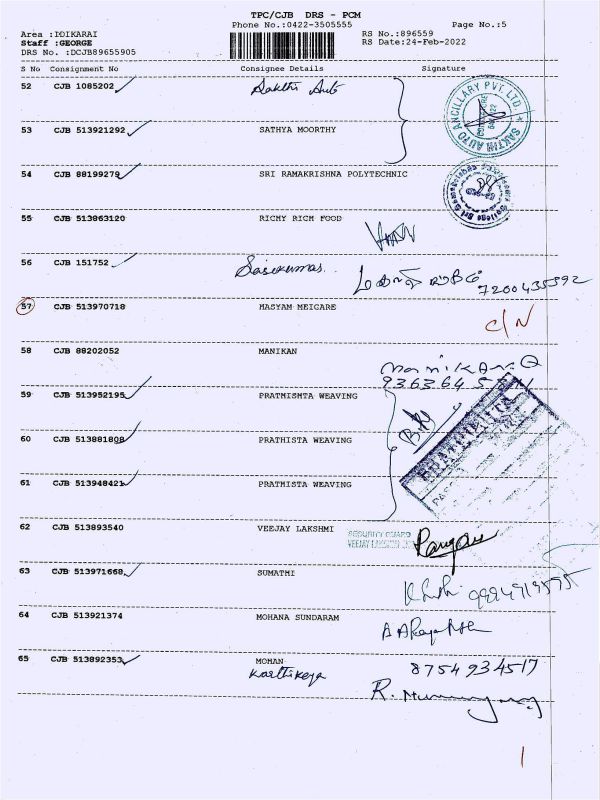 TPC/CJB DRS - PCM
Phone No.:0422-3505555 Page No.:5
Area :IDIKARAI RS No.:896559
Staff :GEORGE RS Date:24-Feb-2022
DRS No. :DCJB89655905
S No Consignment No Consignee Details Signature
52 CJB 1085202 Sakthi Auto
SAKTHI AUTO ANCILLARY PVT. LTD
53 CJB 513921292 SATHYA MOORTHY
54 CJB 88199279 SRI RAMAKRISHNA POLYTECHNIC
55 CJB 513863120 RICHY RICH FOOD
56 CJB 151752 Sasikumar
7200435592
57 CJB 513970718 MASYAM MEICARE C/N
58 CJB 88202052 MANIKAN
59 CJB 513952195 PRATMISMTA WEAVING
60 CJB 513881808 PRATHISTA WEAVING
61 CJB 513948421 PRATMISTA WEAVING
62 CJB 513893540 VEEJAY LAKSHMI
SECURITY GUARD
VEEJAY LAKSHMI
63 CJB 513971668 SUMATMI
64 CJB 513921374 MOHANA SUNDARAM
65 CJB 513892353 MOMAN 8754934517
Karthikeya